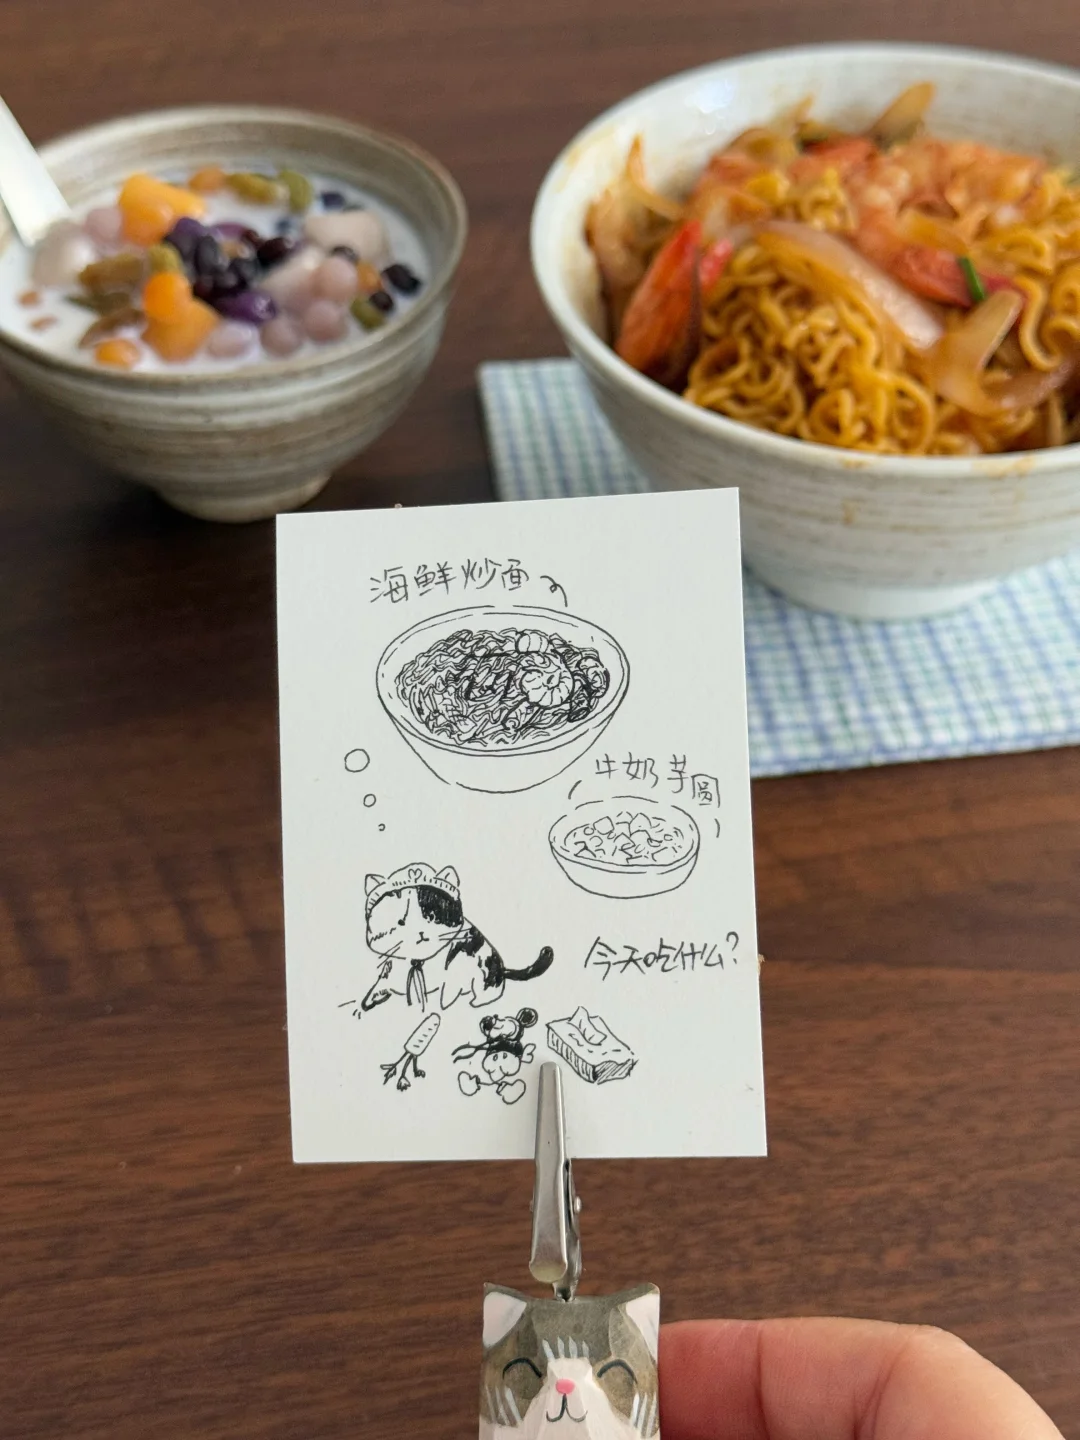 海鲜炒面
牛奶芋圆
今天吃什么?